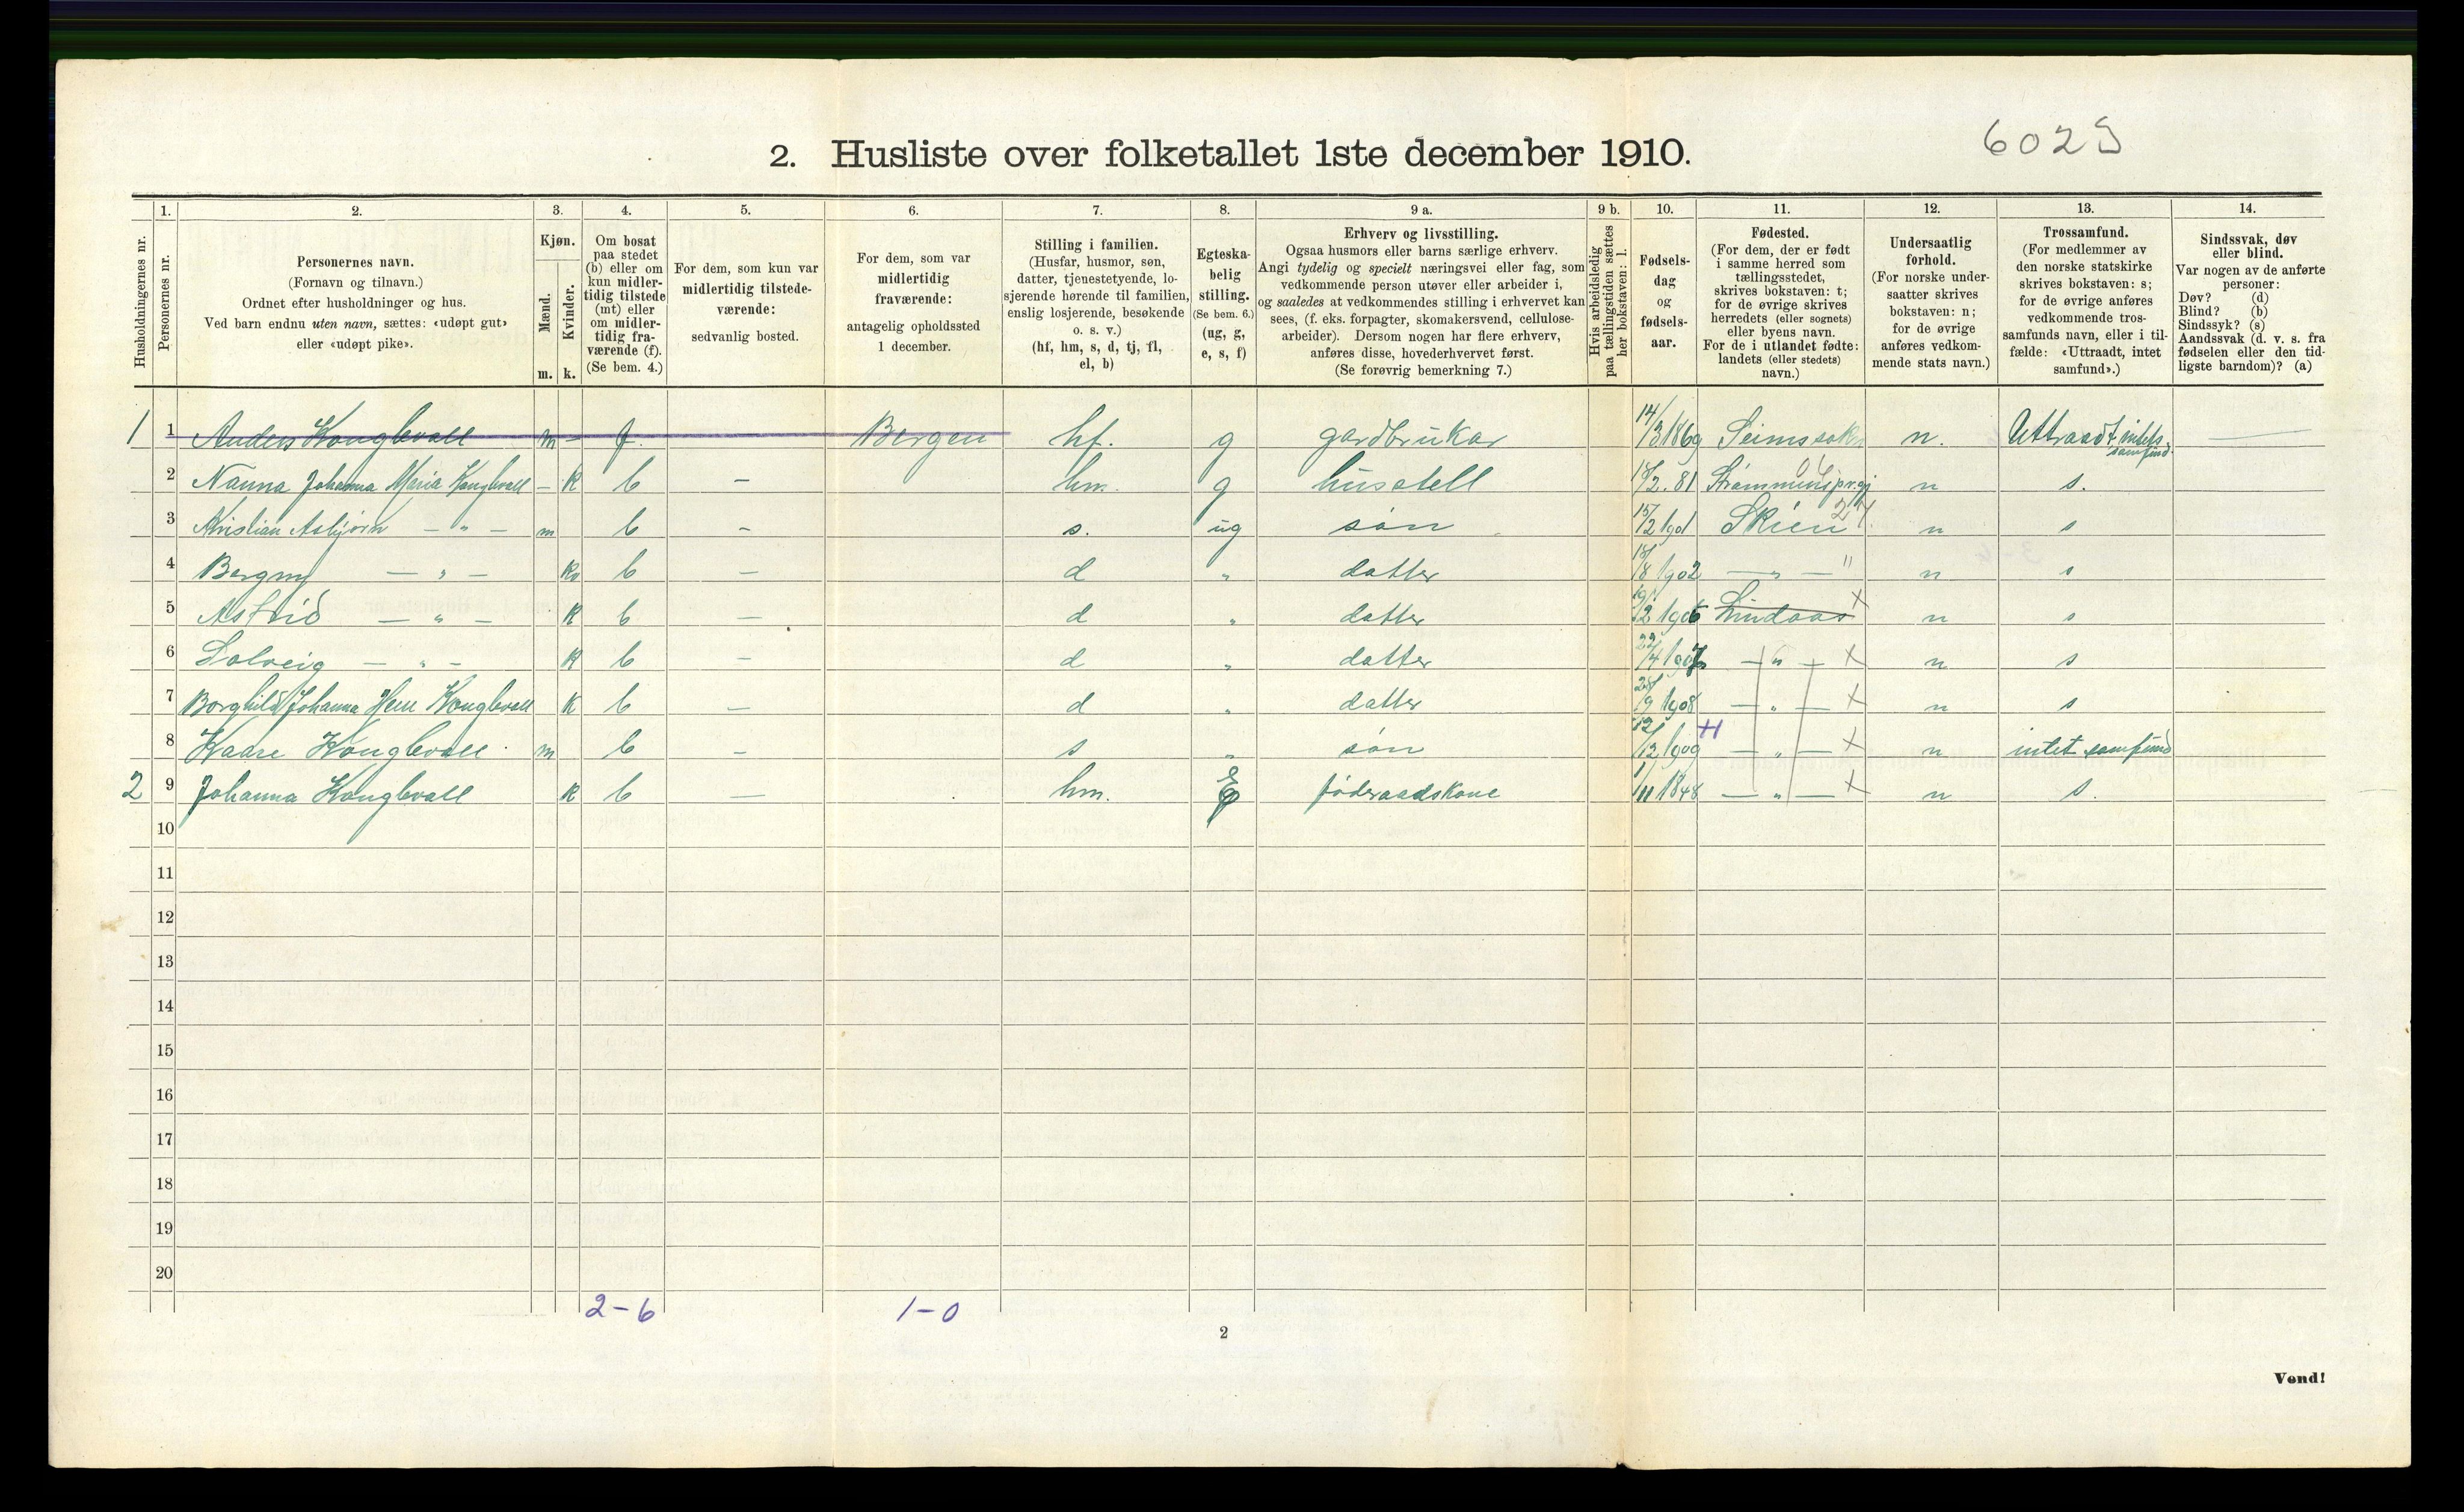 2. Husliste over folketallet 1ste december 1910.
6029
Husholdningernes nr.
1.
Personernes nr.
2.
Personernes navn.
(Fornavn og tilnavn.)
Ordnet efter husholdninger og hus.
Ved barn endnu uten navn, sættes: «udøpt gut»
eller «udøpt pike».
3.
Kjøn.
Mænd.
Kvinder.
m. k.
4.
Om bosat
paa stedet
(b) eller om
kun midler-
tidig tilstede
(mt) eller
om midler-
tidig fra-
værende (f).
(Se bem. 4.)
5.
For dem, som kun var
midlertidig tilstede-
værende:
sedvanlig bosted.
6.
For dem, som var
midlertidig
fraværende:
antagelig opholdssted
1 december.
7.
Stilling i familien.
(Husfar, husmor, søn,
datter, tjenestetyende, lo-
sjerende hørende til familien,
enslig losjerende, besøkende
o. s. v.)
(hf, hm, s, d, tj, fl,
el, b)
8.
Egteska-
belig
stilling.
(Se bem. 6.)
(ug, g,
e, s, f)
9 a.
Erhverv og livsstilling.
Ogsaa husmors eller barns særlige erhverv.
Angi tydelig og specielt næringsvei eller fag, som
vedkommende person utøver eller arbeider i,
og saaledes at vedkommendes stilling i erhvervet kan
sees, (f. eks. forpagter, skomakersvend, cellulose-
arbeider). Dersom nogen har flere erhverv,
anføres disse, hovederhvervet først.
(Se forøvrig bemerkning 7.)
9 b.
Hvis arbeidsledig
paa tællingstiden sættes
her bokstaven: l.
10.
Fødsels-
dag
og
fødsels-
aar.
11.
Fødested.
(For dem, der er født
i samme herred som
tællingsstedet,
skrives bokstaven: t;
for de øvrige skrives
herredets (eller sognets)
eller byens navn.
For de i utlandet fødte:
landets (eller stedets)
navn.)
12.
Undersaatlig
forhold.
(For norske under-
saatter skrives
bokstaven: n;
for de øvrige
anføres vedkom-
mende stats navn.)
13.
Trossamfund.
(For medlemmer av
den norske statskirke
skrives bokstaven: s;
for de øvrige anføres
vedkommende tros-
samfunds navn, eller i til-
fælde: «Uttraadt, intet
samfund».)
14.
Sindssvak, døv
eller blind.
Var nogen av de anførte
personer:
Døv? (d)
Blind? (b)
Sindssyk? (s)
Aandssvak (d. v. s. fra
fødselen eller den tid-
ligste barndom)? (a)
1 1 Anders Konglevoll m - f. - Bergen hf. g gardbrukar 14/3 1869 Seimssokn n. Uttraadt, intets samfund. —
2 Nanna Johanna Maria Konglevoll - k b - hm. g husstell 18/2. 81 n s.
3 Kristian Asbjørn — " — m b - s. ug søn 15/2 1901 Skien n s
4 Bergny — " — k b - d " datter 18/8 1902 — " — " n s
5 Astrid — " — k b - d " datter 2 1905 Lindaas x n s
6 Solveig — " — k b - d " datter 22/4 1907 — " — x n s
7 Borghild Johanna Konglevoll k b - d " datter 28/9 1908 — " — x n s
8 Kaare Konglevoll m b - s " søn 12/12 1909 — " — x n intet samfund
2 9 Johanna Konglevoll k b - hm. E føderaadskone 1/11 1848 — " — x n s.
10
11
12
13
14
15
16
17
18
19
20
2-6 1-0
2
Vend!